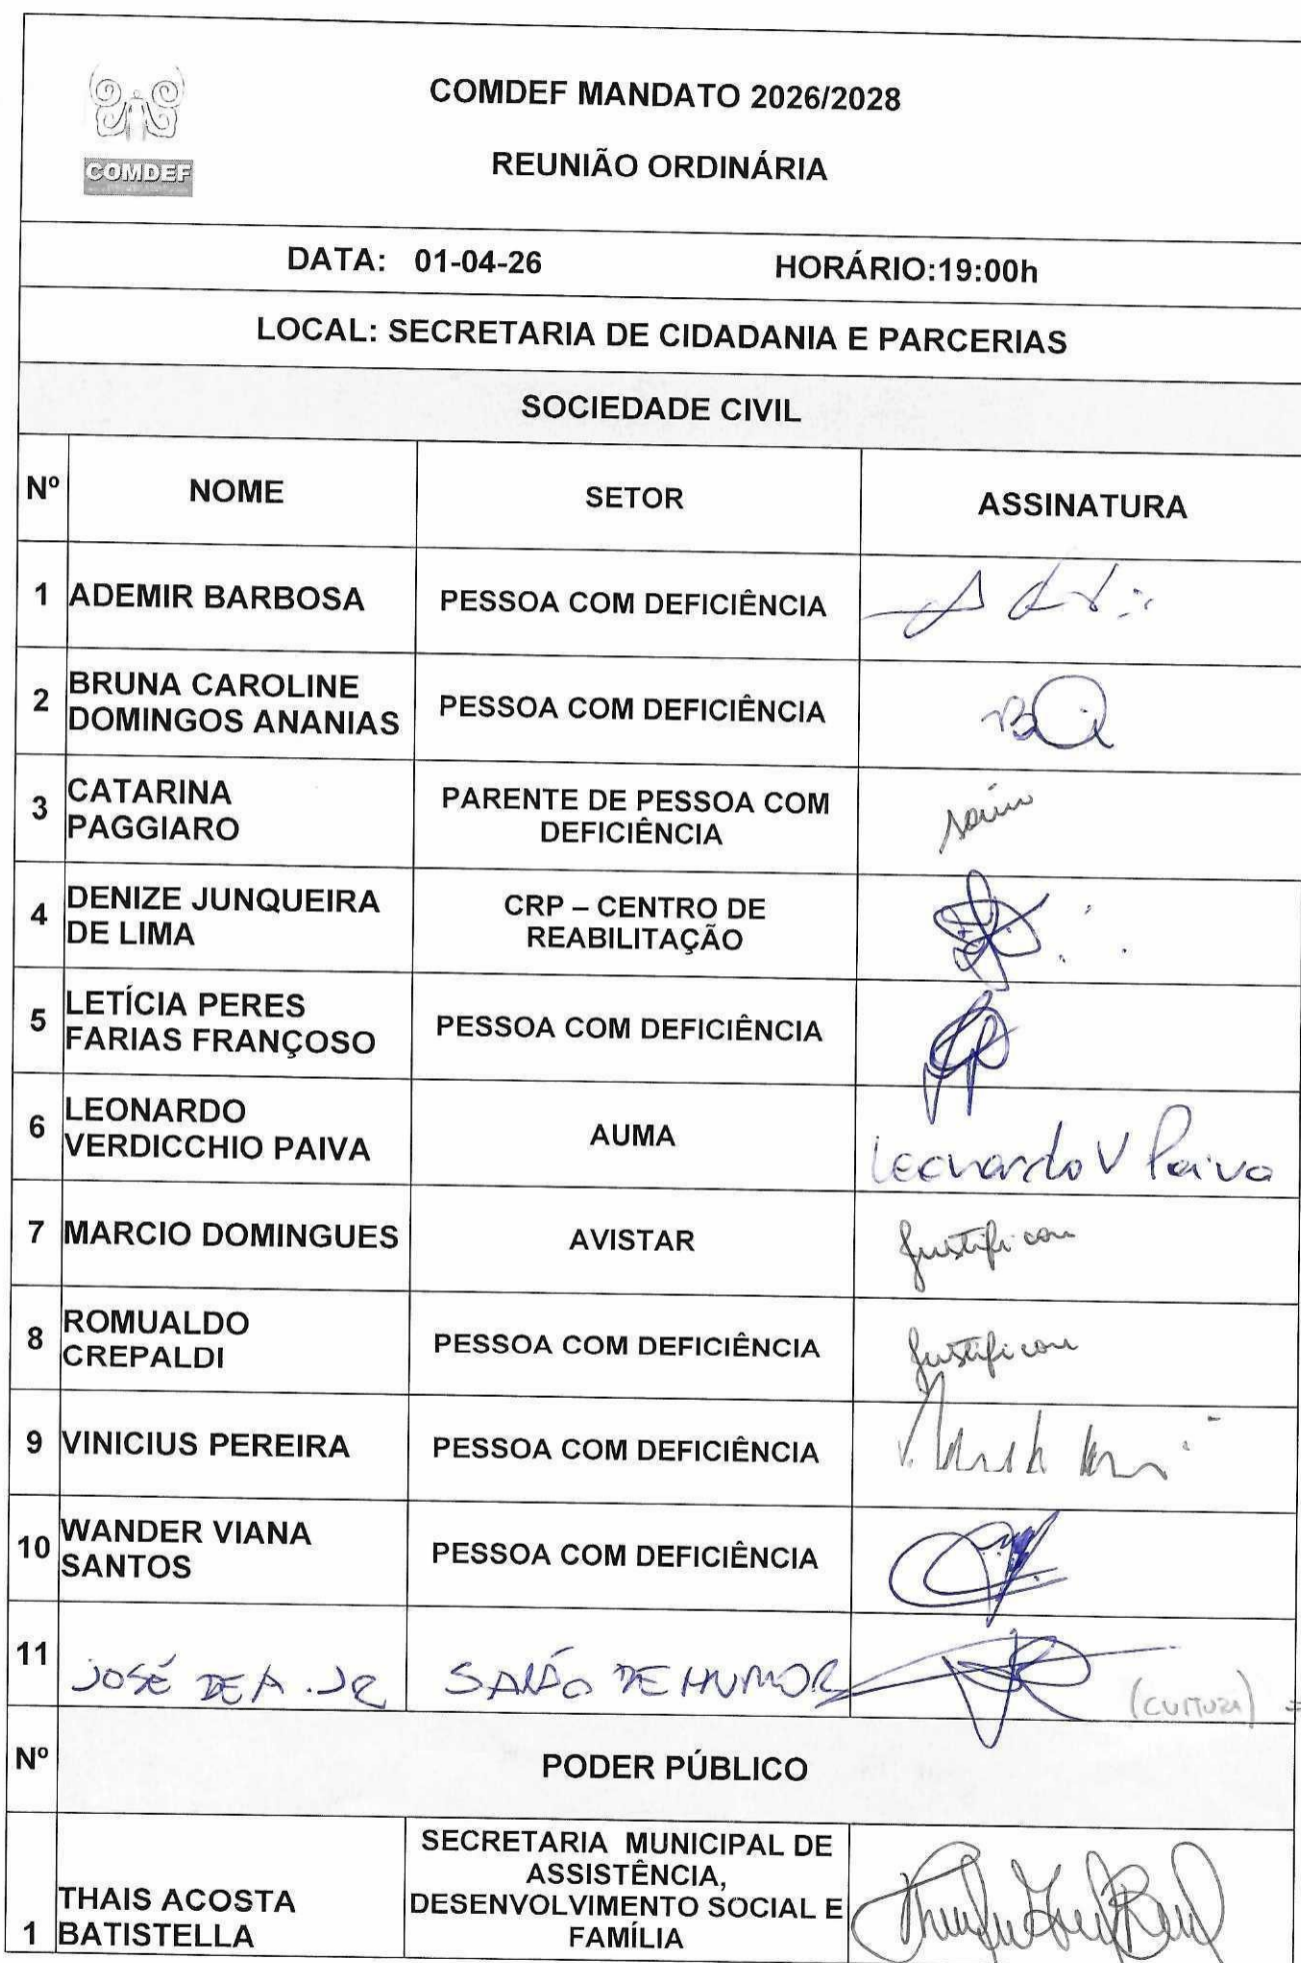 COMDEF
COMDEF MANDATO 2026/2028
REUNIÃO ORDINÁRIA
DATA: 01-04-26 HORÁRIO:19:00h
LOCAL: SECRETARIA DE CIDADANIA E PARCERIAS
SOCIEDADE CIVIL
Nº NOME SETOR ASSINATURA
1 ADEMIR BARBOSA PESSOA COM DEFICIÊNCIA
2 BRUNA CAROLINE
DOMINGOS ANANIAS PESSOA COM DEFICIÊNCIA
3 CATARINA
PAGGIARO
PARENTE DE PESSOA COM
DEFICIÊNCIA
4 DENIZE JUNQUEIRA
DE LIMA
CRP – CENTRO DE
REABILITAÇÃO
5 LETÍCIA PERES
FARIAS FRANÇOSO PESSOA COM DEFICIÊNCIA
6 LEONARDO
VERDICCHIO PAIVA AUMA Leonardo V Paiva
7 MARCIO DOMINGUES AVISTAR Justificou
8 ROMUALDO
CREPALDI PESSOA COM DEFICIÊNCIA Justificou
9 VINICIUS PEREIRA PESSOA COM DEFICIÊNCIA
10 WANDER VIANA
SANTOS PESSOA COM DEFICIÊNCIA
11 JOSÉ DE A. JR SALÃO DE HUMOR (CULTURA)
Nº PODER PÚBLICO
1 THAIS ACOSTA
BATISTELLA
SECRETARIA MUNICIPAL DE
ASSISTÊNCIA,
DESENVOLVIMENTO SOCIAL E
FAMÍLIA